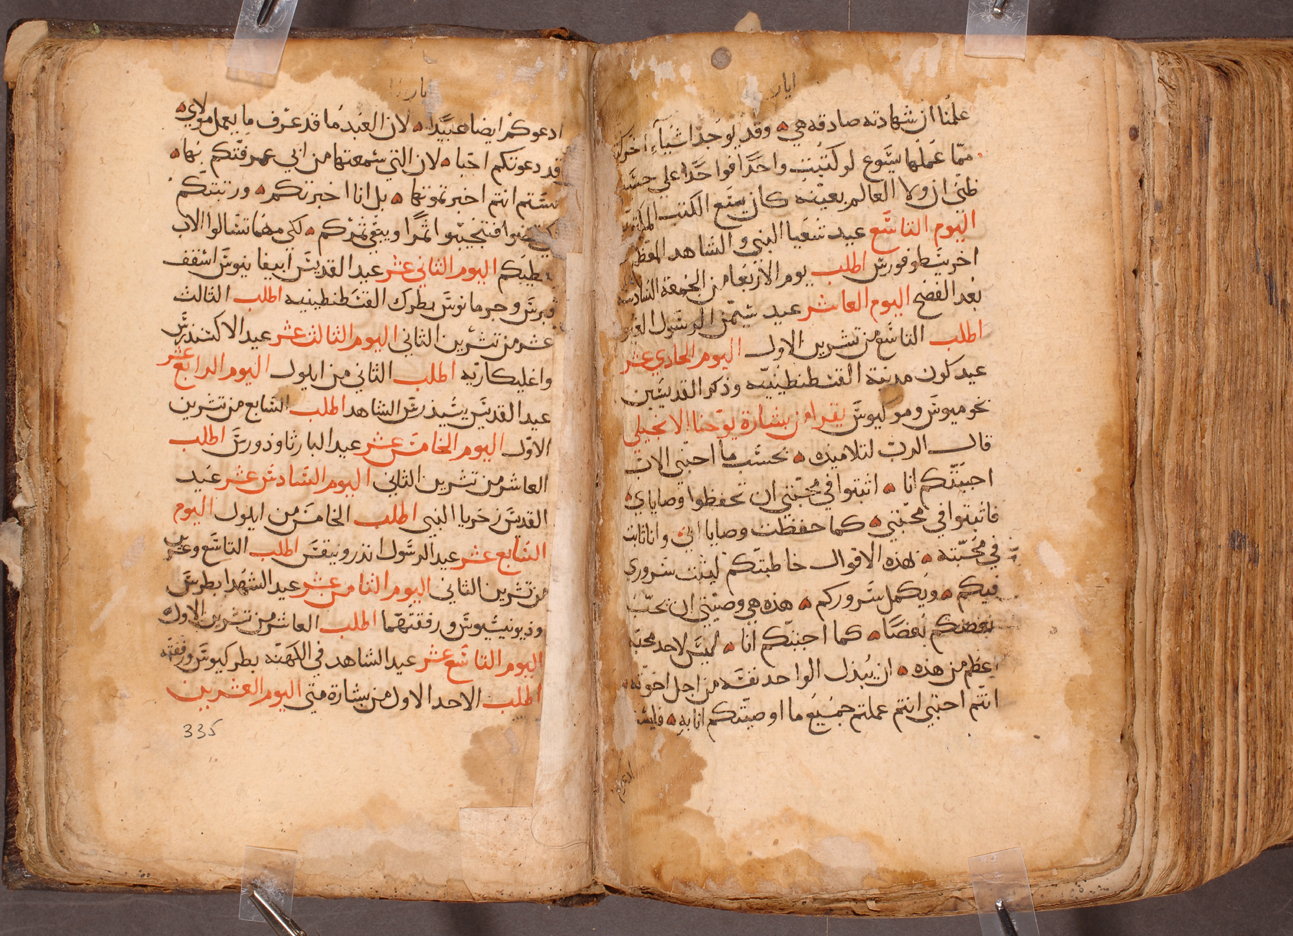 ايار
علمنا ان شهادته صادقه هي وقد توجد اشياء اخر كثيره
مما عملها يسوع لو كتبت واحدا فواحدا على حسب
ظني ان ولا العالم بعينه كان يسع الكتب المكتوبه
اليوم التاسع عيد شعيا النبي والشاهد المعظم
اخرسطوفورس اطلب يوم الاربعا من الجمعه السادسه
بعد الفصح اليوم العاشر عيد سيمن الرسول الغيور
اطلب التاسع من تشرين الاول اليوم الحادي عشر
عيد كون مدينة القسطنطينيه وذكر القديسين
نحوميوس وموليوس يقرا من بشارة يوحنا الانجيلي
قال الرب لتلاميذه بحسب ما احبني الاب
احببتكم انا اثبتوا في محبتي ان تحفظوا وصاياي
فاثبتوا في محبتي كما حفظت وصايا ابي وانا ثابت
في محبته بهذه الاقوال خاطبتكم ليثبت سروري
فيكم ويكمل سروركم هذه هي وصيتي ان يحب
بعضكم بعضا كما احببتكم انا ليس لاحد محبه
اعظم من هذه ان يبذل الواحد نفسه من اجل اخوته
انتم احبتي انتم عملتم جميع ما اوصيتكم انا به فليس
ادعوكم
ايار
ادعوكم ايضا عبيدا لان العبد ما قد عرف ما يعمل مولاي
قد دعوتكم احبا لان التي سمعتها من ابي عرفتكم بها
لستم انتم اخترتموني بل انا اخترتكم ورتبتكم
لتمضوا فتنجبوا ثمرا ويبقى ثمركم لكي مهما تسالوا الاب
يعطيكم اليوم الثاني عشر عيد القديس ابيفانيوس اسقف
قبرس وجرمانوس بطرك القسطنطينيه اطلب الثالث
عشر من تشرين الثاني اليوم الثالث عشر عيد الاكسندرس
واغليكاريه اطلب الثاني من ايلول اليوم الرابع عشر
عيد القديس يسيذرس الشاهد اطلب السابع من تشرين
الاول اليوم الخامس عشر عيد البار ثاوذورس اطلب
العاشر من تشرين الثاني اليوم السادس عشر عيد
القديس زخريا النبي اطلب الخامس من ايلول اليوم
السابع عشر عيد الرسول اندرونيقس اطلب التاسع وعشرين
من تشرين الثاني اليوم الثامن عشر عيد الشهدا بطرس
وديونيسيوس ورفقتهما اطلب العاشر من تشرين الاول
اليوم التاسع عشر عيد الشاهد في الكهنه بطريكيوس ورفقته
اطلب الاحد الاول من بشارة متى اليوم العشرين
335